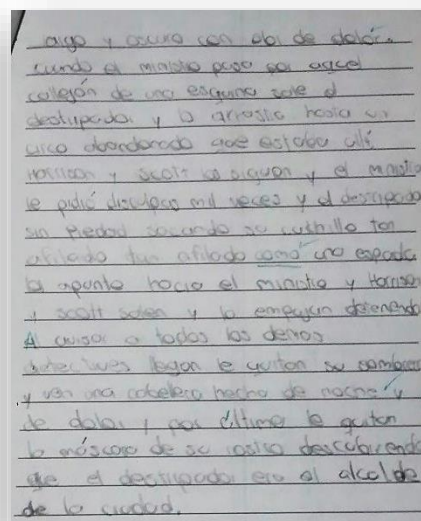 largo y oscuro con olor de dolor.
cundo el ministro paso por aquel
callejón de una esquina sale el
destripador y lo arrastro hasia un
circo abandonado que estaba allí
Harrison y scott los siguen y el ministro
le pidió disculpas mil veces y el destripador
sin piedad sacando su cuchillo tan
afilado tan afilado como una espada
lo apunto hacia el ministro y Harrison
y scott salen y lo empujan deteniendo
Al avisar a todos los demas
detectives llegan le quitan su sombrero
y ven una cabellera hecha de noche y
de dolor y por último le quitan
la máscara de su rostro descubriendo
que el destripador era el alcalde
de la ciudad.